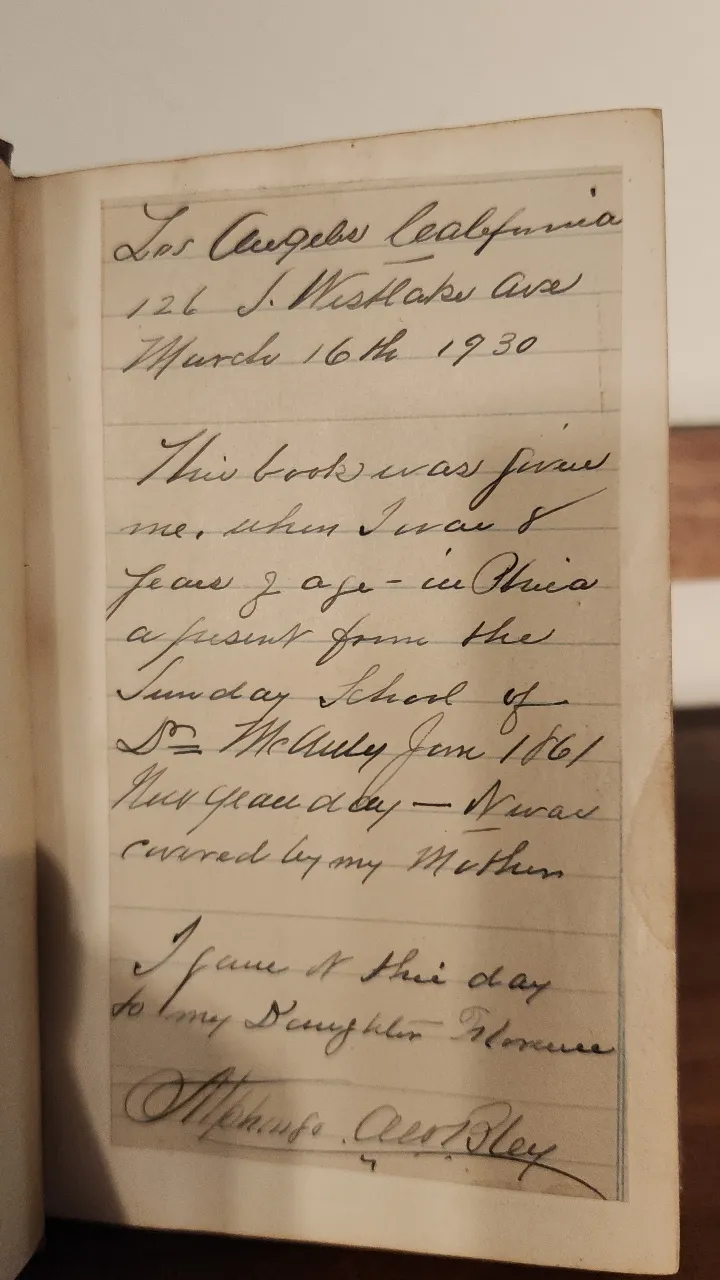 Los Angeles California
126 S. Westlake Ave
March 16th 1930
This book was given
me, when I was 8
years of age - in Phia
a present from the
Sunday School of
Dr McAuly Jan 1861
New years day — It was
covered by my Mother
I gave it this day
to my Daughter Florence
Alphonso